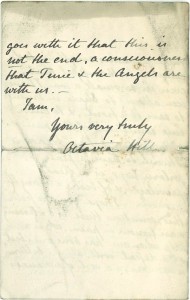 goes with it that this is
not the end, a consciousness
that Time & the Angels are
with us. —
I am,
Yours very truly
Octavia Hill